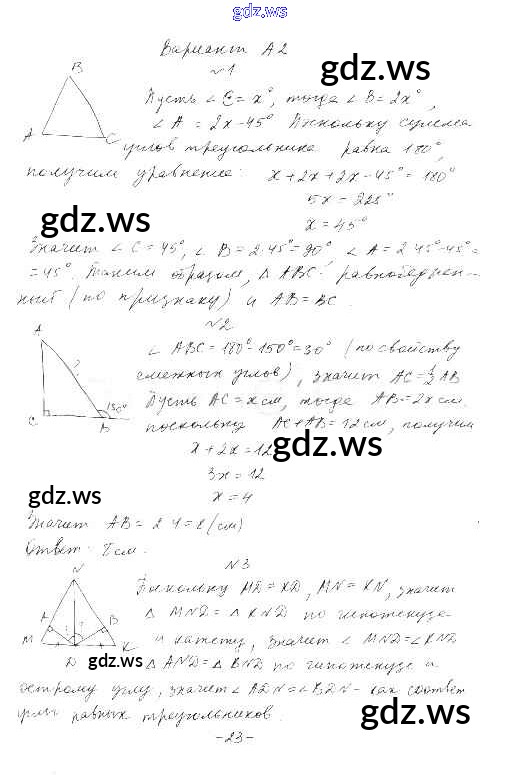 gdz.ws
Вариант А2
gdz.ws
№1
B
Пусть ∠C = x°, тогда ∠B = 2x°,
A
C
∠A = 2x-45° Поскольку сумма
углов треугольника равна 180°,
получим уравнение: x+2x+2x-45°=180°
5x = 225°
gdz.ws
x = 45°
Значит ∠C=45°, ∠B = 2·45°=90°, ∠A = 2·45°-45°=
=45°. Таким образом, Δ ABC - равнобедрен-
ный (по признаку) и AB=BC.
№2
A
∠ABC=180°-150°=30° (по свойству
?
смежных углов), значит AC=½AB
C
150°
B
Пусть AC=x см, тогда AB=2x см,
поскольку AC+AB=12см, получим
x+2x=12
gdz.ws
3x=12
gdz.ws
x=4
Значит AB=2·4=8(см)
Ответ: 8см.
№3
N
Поскольку MD=KD, MN=KN, значит
Δ MND=Δ KND по гипотенузе
A
B
M
K
и катету, значит ∠MND=∠KND
D
gdz.ws
Δ AND=Δ BND по гипотенузе и
острому углу, значит ∠ADN=∠BDN- как соответ
углы равных треугольников.
gdz.ws
-23-